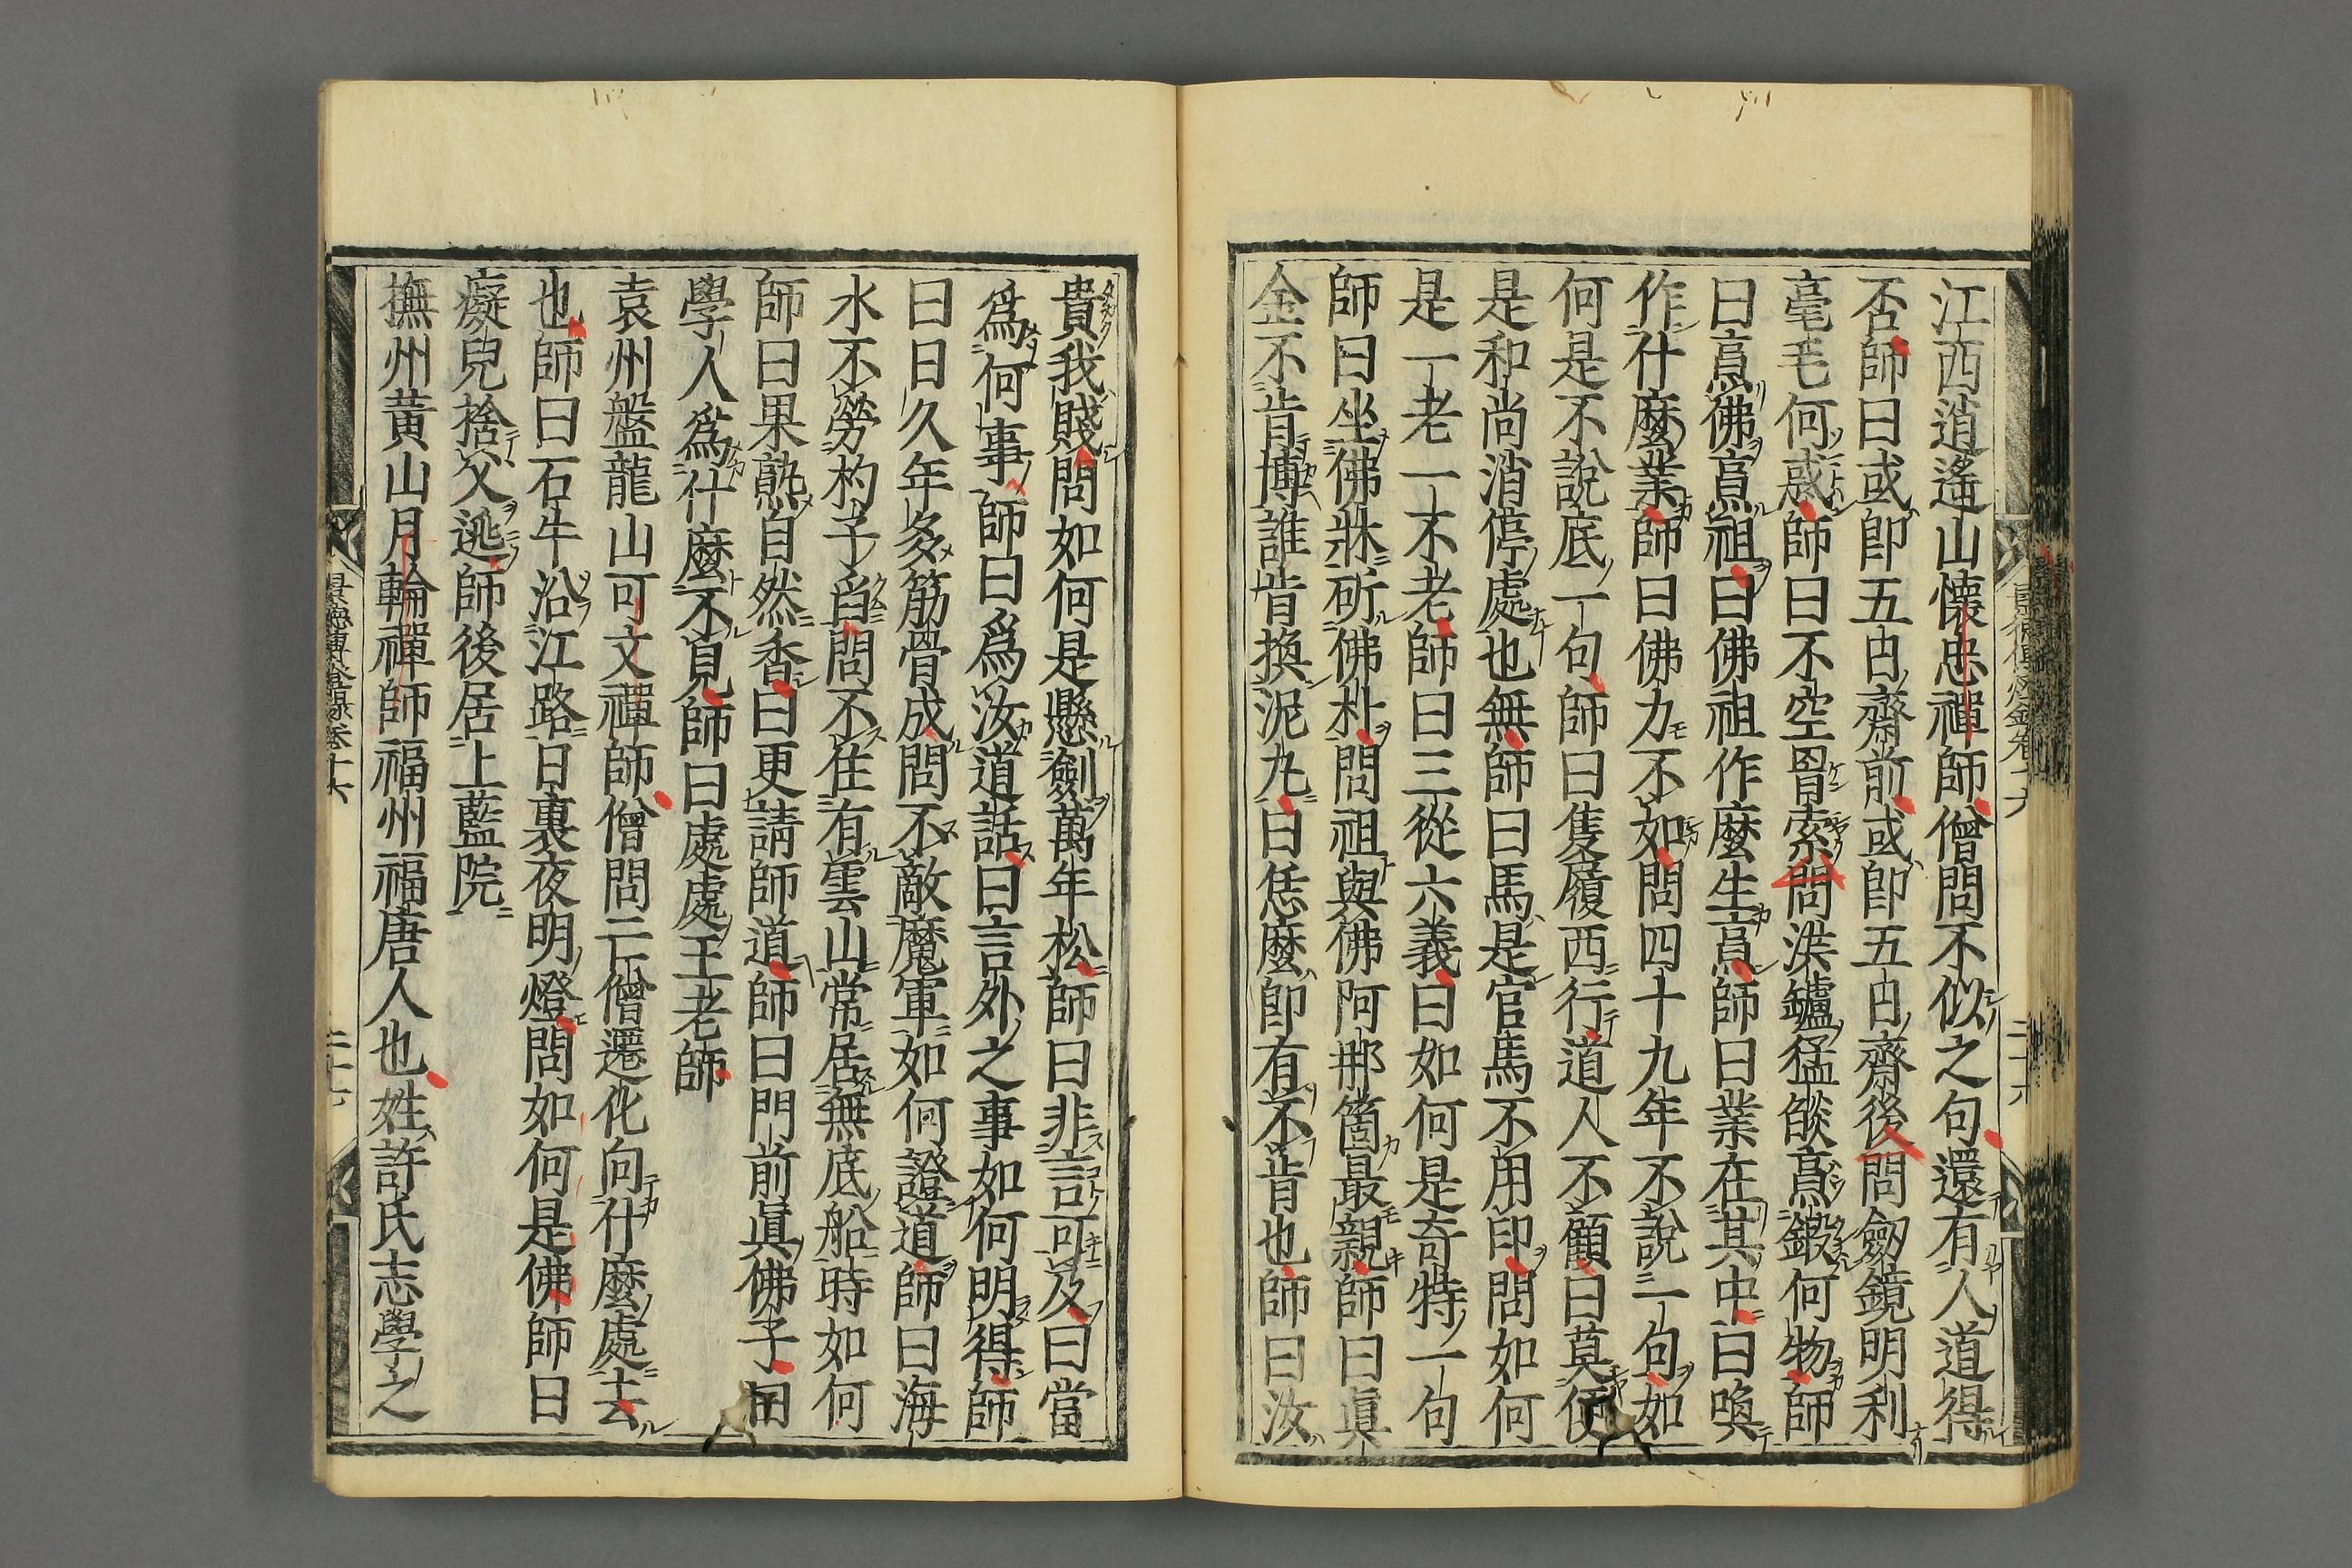 江西逍遙山懷忠禪師僧問不似之句還有人道得
否師曰或即五日齋前或即五日齋後問劒鏡明利
毫毛何惑師曰不空罥索問洪鑪猛燄烹鍛何物師
曰烹佛烹祖曰佛祖作麼生烹師曰業在其中曰喚
作什麼業師曰佛力不如問四十九年不說一句如
何是不說底一句師曰隻履西行道人不顧曰莫便
是和尚消停處也無師曰馬是官馬不用印問如何
是一老一不老師曰三從六義曰如何是奇特一句
師曰坐佛牀斫佛朴問祖與佛阿那箇最親師曰眞
金不肯博誰肯換泥丸曰恁麼即有不肯也師曰汝
貴我賤問如何是懸劍萬年松師曰非言可及曰當
爲何事師曰爲汝道話曰言外之事如何明得師
曰日久年多筋骨成問不敵魔軍如何證道師曰海
水不勞杓子舀問不住有雲山常居無底船時如何
師曰果熟自然香曰更請師道師曰門前眞佛子曰
學人爲什麼不見師曰處處王老師
袁州盤龍山可文禪師僧問亡僧遷化向什麼處去
也師曰石牛沿江路日裏夜明燈問如何是佛師曰
癡兒捨父逃師後居上藍院
撫州黃山月輪禪師福州福唐人也姓許氏志學之